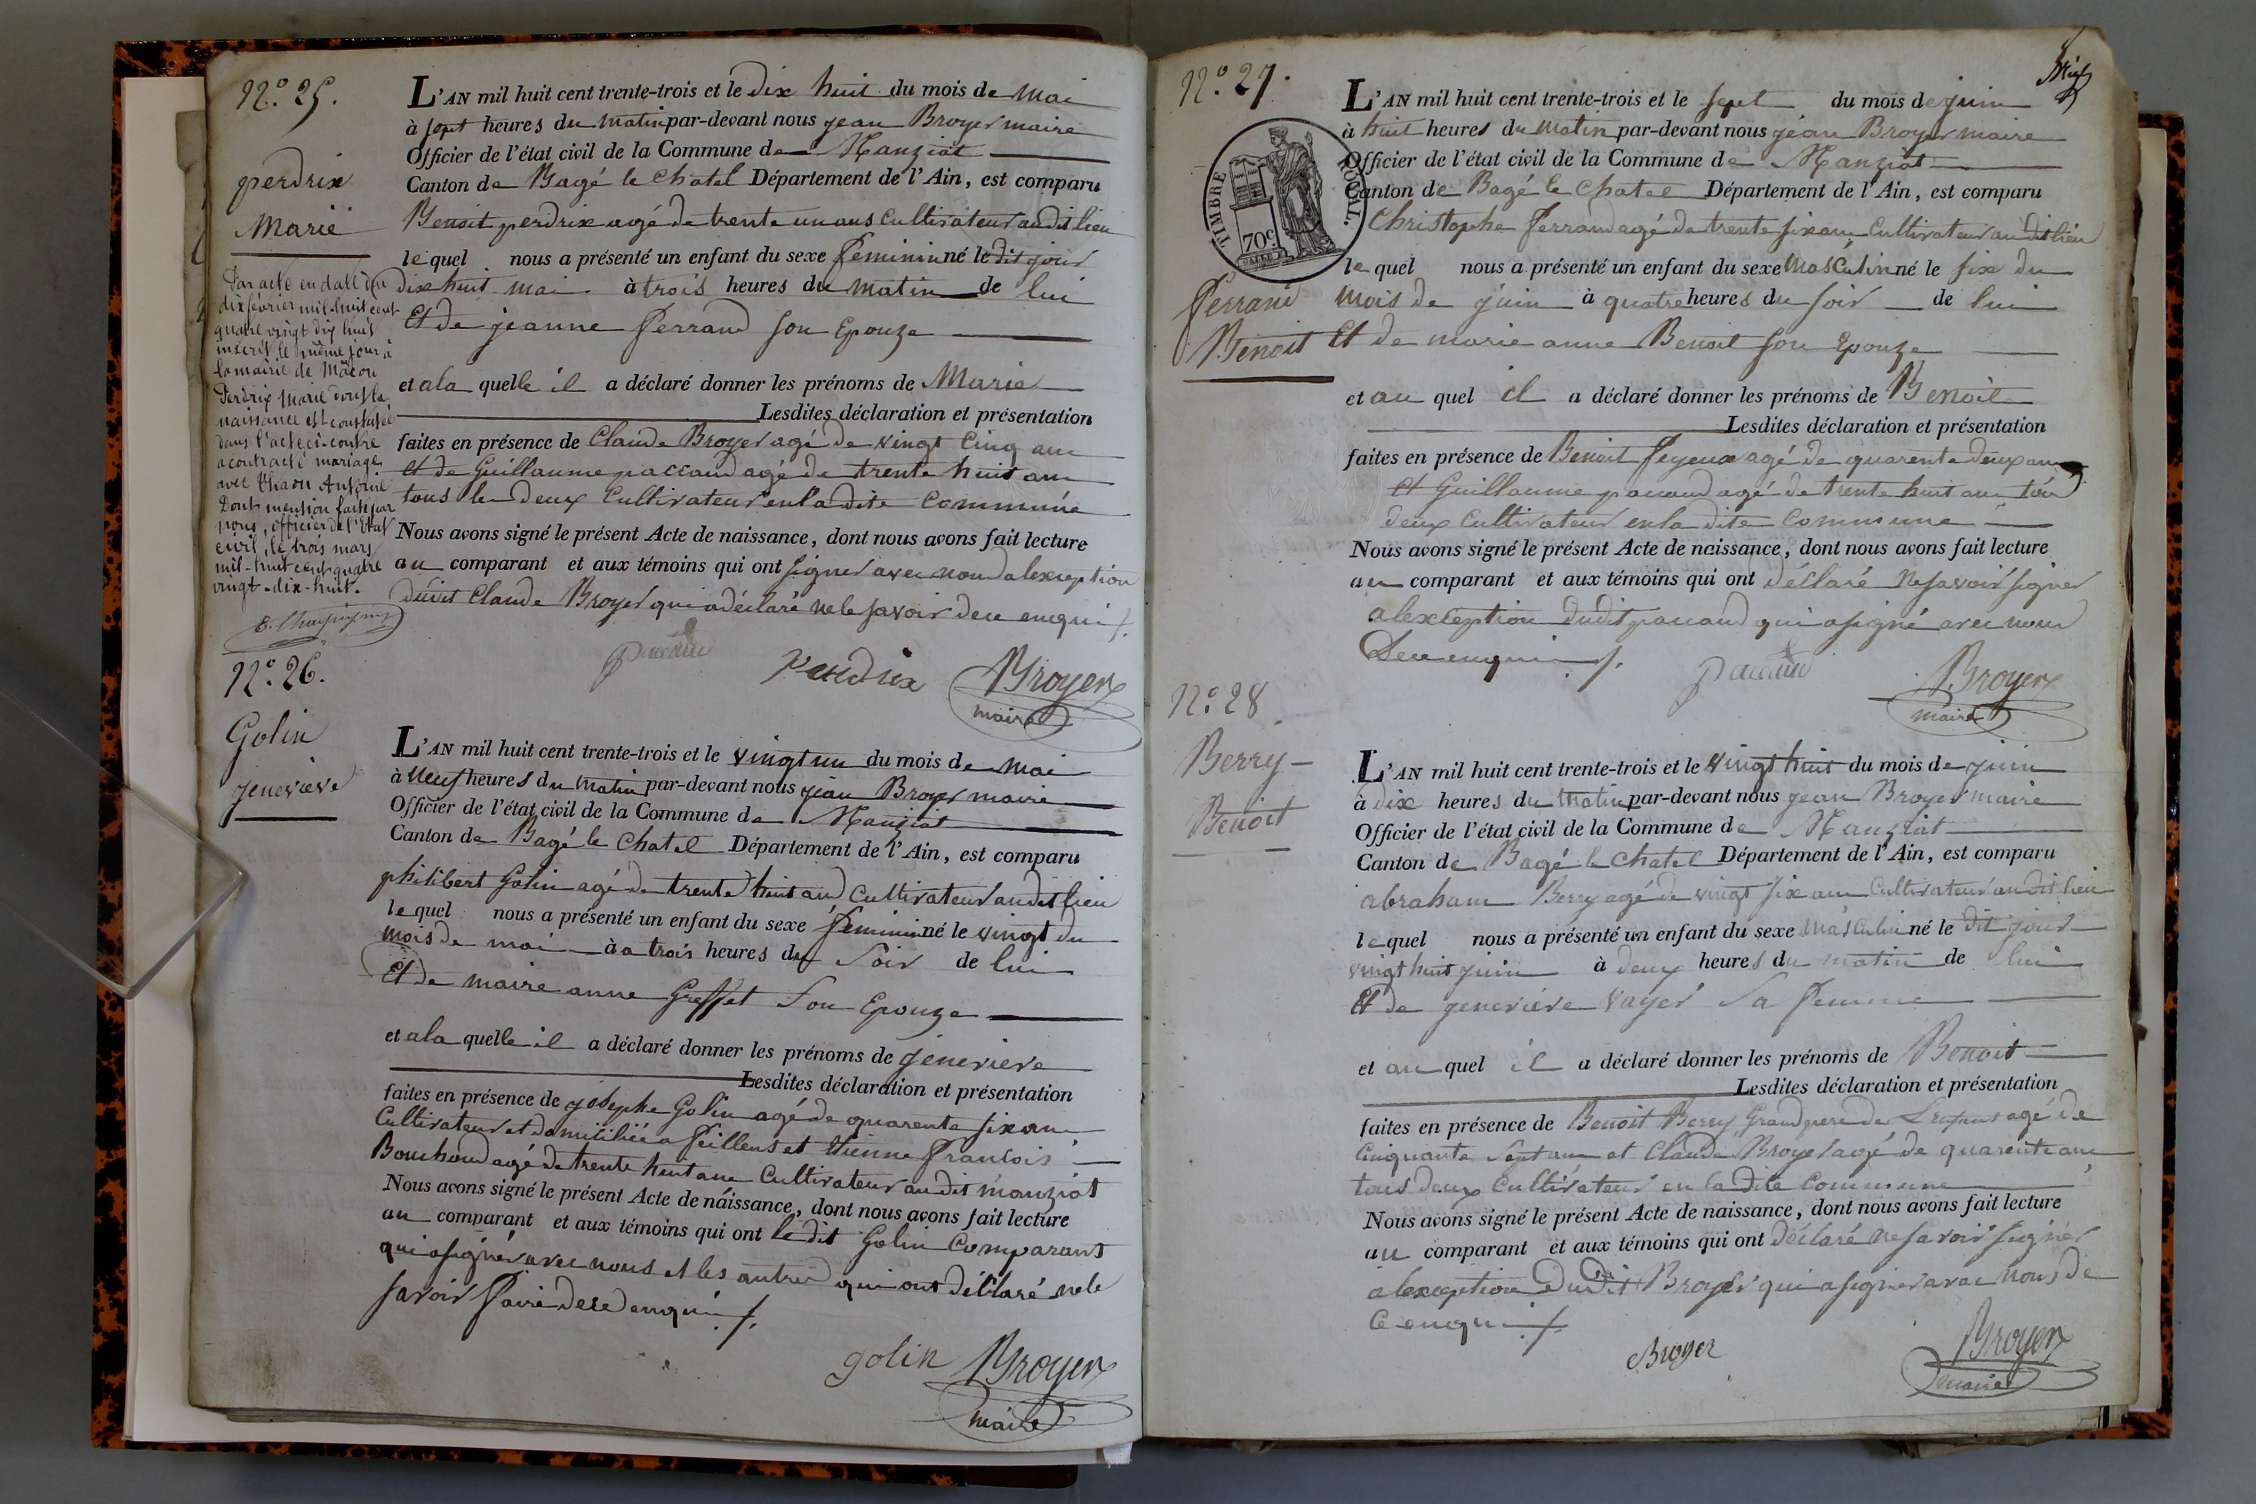 N.o 25.
perdrix
Marie
L'AN mil huit cent trente-trois et le dix huit du mois de mai
à sept heures du matin par-devant nous jean Broyer maire
Officier de l'état civil de la Commune de Manziat
Canton de Bagé le chatel Département de l'Ain, est comparu
Benoit perdrix agé de trente un ans cultivateur audit lieu
lequel nous a présenté un enfant du sexe feminin né le dit jour
dix huit mai à trois heures du matin de lui
Et de jeanne ferrand son Epouze
et a la quelle il a déclaré donner les prénoms de Marie
Lesdites déclaration et présentation
faites en présence de Claude Broyer agé de vingt cinq ans
et de Guillaume paccaud agé de trente huit ans
tous les deux cultivateur en la dite commune
Nous avons signé le présent Acte de naissance, dont nous avons fait lecture
au comparant et aux témoins qui ont signer avec nous alexception
dudit Claude Broyer qui a déclaré ne le savoir de ce enquis
paccaud perdrix Broyer
maire
Par acte en date du
dix février mil huit cent
quatre vingt dix huit
inscrit le même jour à
la mairie de Mâcon
Perdrix Marie dont la
naissance est constatée
dans l'acte ci-contre
a contracté mariage
avec Antoine
Dont mention faite par
nous, officier de l'Etat
civil, le trois mars
mil-huit cent quatre
vingt-dix-huit.
N.o 26.
Golin
jenevieve
L'AN mil huit cent trente-trois et le vingt un du mois de mai
à neuf heures du matin par-devant nous jean Broyer maire
Officier de l'état civil de la Commune de Manziat
Canton de Bagé le chatel Département de l'Ain, est comparu
philibert Golin agé de trente huit ans cultivateur audit lieu
lequel nous a présenté un enfant du sexe feminin né le vingt du
mois de mai à a trois heures du soir de lui
Et de maire anne Greffet son Epouze
et a la quelle il a déclaré donner les prénoms de jenevieve
Lesdites déclaration et présentation
faites en présence de josephe Golin agé de quarente six ans
Cultivateur et domicilié a feillens et Etienne francois
Bouchoud agé de trente huit ans Cultivateur au dit manziat
Nous avons signé le présent Acte de naissance, dont nous avons fait lecture
au comparant et aux témoins qui ont le dit Golin Comparant
qui a signé avec nous et les autres qui ont déclaré ne le
savoir faire de ce enquis
golin Broyer
maire
N.o 27.
ferrand
Benoit
TIMBRE ROYAL.
70c
L'AN mil huit cent trente-trois et le sept du mois de juin
à huit heures du matin par-devant nous jean Broyer maire
Officier de l'état civil de la Commune de Manziat
Canton de Bagé le chatel Département de l'Ain, est comparu
Christophe ferrand agé de trente six ans Cultivateur au dit lieu
lequel nous a présenté un enfant du sexe masculin né le six du
mois de juin à quatre heures du soir de lui
Et de marie anne Benoit son Epouze
et au quel il a déclaré donner les prénoms de Benoit
Lesdites déclaration et présentation
faites en présence de Benoit feyeux agé de quarente deux ans
et Guillaume paccaud agé de trente huit ans tou
deux cultivateur en la dite commune
Nous avons signé le présent Acte de naissance, dont nous avons fait lecture
au comparant et aux témoins qui ont déclaré ne savoir signer
alexception dudit paccaud qui a signé avec nous
De ce enquis
paccaud Broyer
maire
N.o 28
Berry
Benoit
L'AN mil huit cent trente-trois et le vingt huit du mois de juin
à dix heures du matin par-devant nous jean Broyer maire
Officier de l'état civil de la Commune de Manziat
Canton de Bagé le chatel Département de l'Ain, est comparu
abraham Berry agé de vingt six ans Cultivateur au dit lieu
lequel nous a présenté un enfant du sexe masculin né le dit jour
vingt huit juin à deux heures du matin de lui
Et de genevieve vayer sa femme
et au quel il a déclaré donner les prénoms de Benoit
Lesdites déclaration et présentation
faites en présence de Benoit Berry Grand pere de L'enfant agé de
Cinquante sept ans et Claude Broyer agé de quarente ans
tous deux Cultivateur en la dite Commune
Nous avons signé le présent Acte de naissance, dont nous avons fait lecture
au comparant et aux témoins qui ont déclaré ne savoir signer
alexception dudit Broyer qui a signer avec nous de
Ce enquis
Broyer Broyer
maire